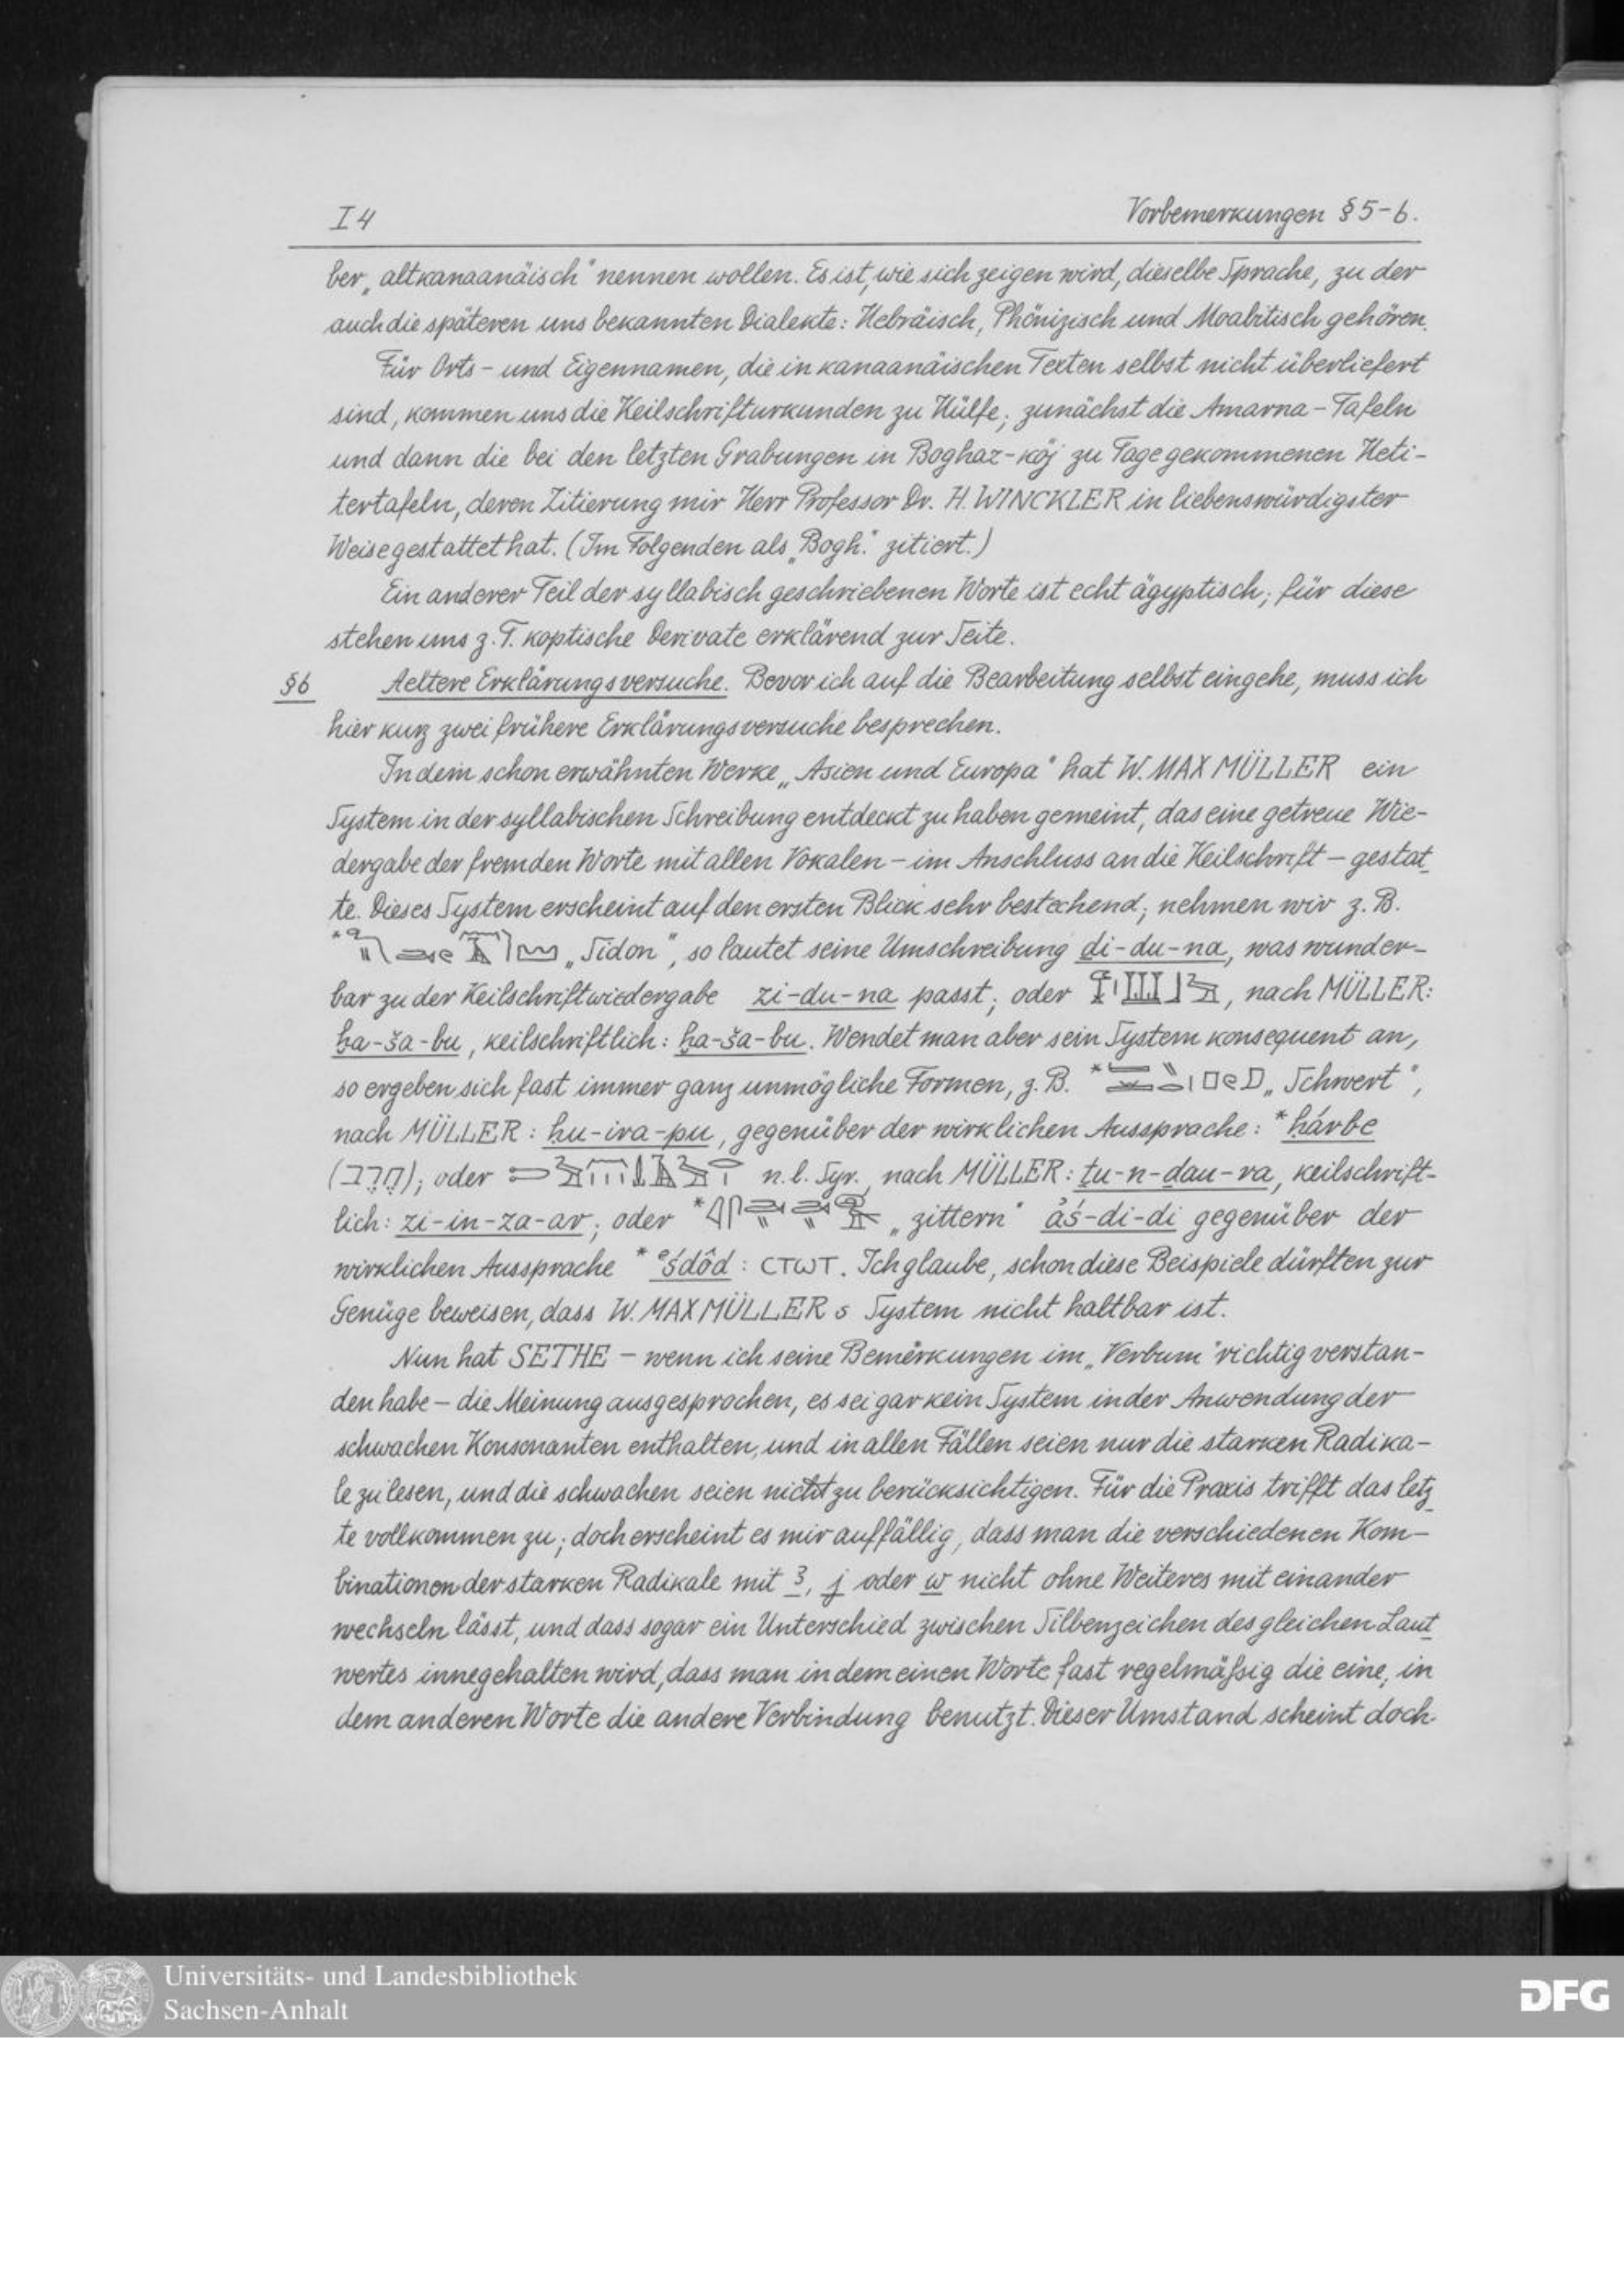 I 4 Vorbemerkungen § 5-6.
ber „altkanaanäisch" nennen wollen. Es ist, wie sich zeigen wird, dieselbe Sprache, zu der
auch die späteren uns bekannten Dialekte: Hebräisch, Phönizisch und Moabitisch gehören.
Für Orts- und Eigennamen, die in kanaanäischen Texten selbst nicht überliefert
sind, kommen uns die Keilschrifturkunden zu Hülfe; zunächst die Amarna-Tafeln
und dann die bei den letzten Grabungen in Boghaz-köj zu Tage gekommenen Heti-
tertafeln, deren Zitierung mir Herr Professor Dr. H. WINCKLER in liebenswürdigster
Weise gestattet hat. (Im Folgenden als „Bogh." zitiert.)
Ein anderer Teil der syllabisch geschriebenen Worte ist echt ägyptisch; für diese
stehen uns z. T. koptische Derivate erklärend zur Seite.
§6 Aeltere Erklärungsversuche. Bevor ich auf die Bearbeitung selbst eingehe, muss ich
hier kurz zwei frühere Erklärungsversuche besprechen.
In dem schon erwähnten Werke „Asien und Europa" hat W. MAX MÜLLER ein
System in der syllabischen Schreibung entdeckt zu haben gemeint, das eine getreue Wie-
dergabe der fremden Worte mit allen Vokalen - im Anschluss an die Keilschrift - gestat-
te. Dieses System erscheint auf den ersten Blick sehr bestechend; nehmen wir z. B.
* „Sidon", so lautet seine Umschreibung ḏi-du-na, was wunder-
bar zu der Keilschriftwiedergabe zi-du-na passt; oder , nach MÜLLER:
ḫa-ša-bu, keilschriftlich: ḫa-ša-bu. Wendet man aber sein System konsequent an,
so ergeben sich fast immer ganz unmögliche Formen, z. B. * „Schwert",
nach MÜLLER: ḫu-ira-pu, gegenüber der wirklichen Aussprache: *ḥárbe
(חרב); oder n. l. Syr., nach MÜLLER: ṯu-n-ḏau-ra, keilschrift-
lich: zi-in-za-ar; oder * „zittern" ȧś-di-di gegenüber der
wirklichen Aussprache *ᵉśdôd: ⲥⲧⲱⲧ. Ich glaube, schon diese Beispiele dürften zur
Genüge beweisen, dass W. MAX MÜLLER s System nicht haltbar ist.
Nun hat SETHE - wenn ich seine Bemerkungen im „Verbum" richtig verstan-
den habe - die Meinung ausgesprochen, es sei gar kein System in der Anwendung der
schwachen Konsonanten enthalten, und in allen Fällen seien nur die starken Radika-
le zu lesen, und die schwachen seien nicht zu berücksichtigen. Für die Praxis trifft das letz-
te vollkommen zu; doch erscheint es mir auffällig, dass man die verschiedenen Kom-
binationen der starken Radikale mit ꜣ, j oder w nicht ohne Weiteres mit einander
wechseln lässt, und dass sogar ein Unterschied zwischen Silbenzeichen des gleichen Laut-
wertes innegehalten wird, dass man in dem einen Worte fast regelmäßig die eine, in
dem anderen Worte die andere Verbindung benutzt. Dieser Umstand scheint doch
Universitäts- und Landesbibliothek
Sachsen-Anhalt
DFG